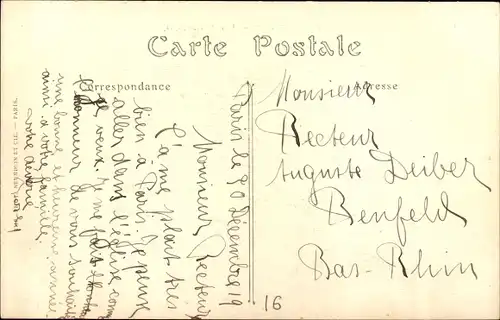 Carte Postale
Correspondance
Adresse
Monsieur
Recteur
Auguste Deiber
Benfeld
Bas-Rhin
Paris le 30 Décembre 19
Monsieur Recteur
J'a me plait très
bien a Paris. Je peux
aller dans l'église com
je veux. Je me fait
l'honneur de vous souhaite
une bonne et heureuse année
aimi. a votre famille.
votre devoué
16